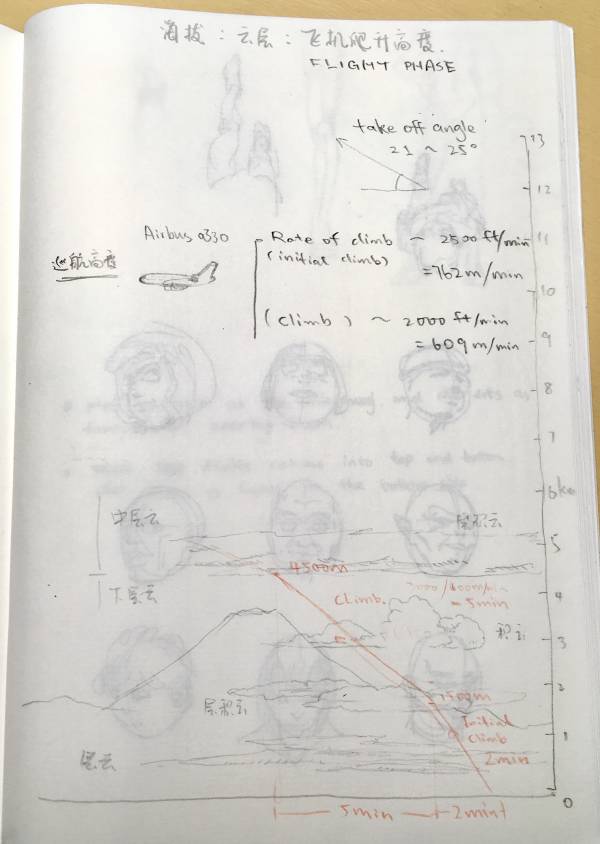 海拔：云层：飞机爬升高度.
FLIGHT PHASE
take off angle
21 ~ 25°
13
12
Airbus a330
Rate of climb ~ 2500 ft/min
11
(initial climb)
= 762 m/min
巡航高度
10
(climb) ~ 2000 ft/min
= 609 m/min
9
8
7
6km
中层云
层积云
5
4500m
下层云
climb.
3000/600m/min
= 5min
4
积云
3
2
1500m
层积云
Initial
climb
1
层云
2min
0
5min
2min